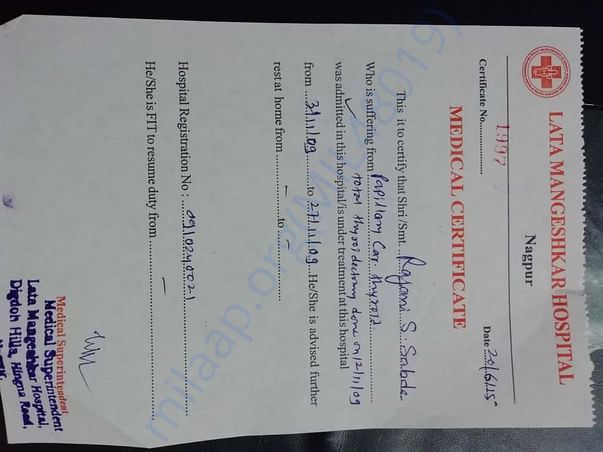 LATA MANGESHKAR HOSPITAL
Nagpur
Certificate No. 1997
Date 20/6/15
MEDICAL CERTIFICATE
This it to certify that Shri /Smt. Rajani S. Sabde
Who is suffering from Papillary Car. thyroid
total thyroidectomy done on 12/11/09
was admitted in this hospital/is under treatment at this hospital
from 3/11/09 to 27/11/09 He/She is advised further
rest at home from – to –
Hospital Registration No : 0910240021
He/She is FIT to resume duty from –
Medical Superintendent
Medical Superintendent
Lata Mangeshkar Hospital,
Digdoh Hills, Hingna Road,
milaap.org(MIL48019)